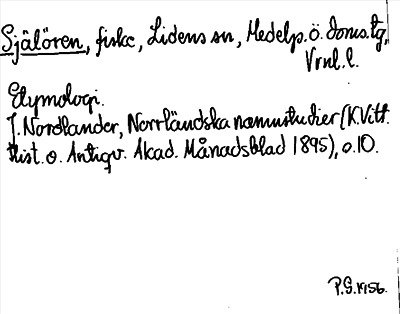 Själören, fiske, Lidens sn, Medelp. ö. doms. tg,
Vrnl. l.
Etymologi.
J. Nordlander, Norrländska namnstudier (K. Vitt.
Hist. o. Antiqv. Akad. Månadsblad 1895), s. 10.
P.G. 1956.